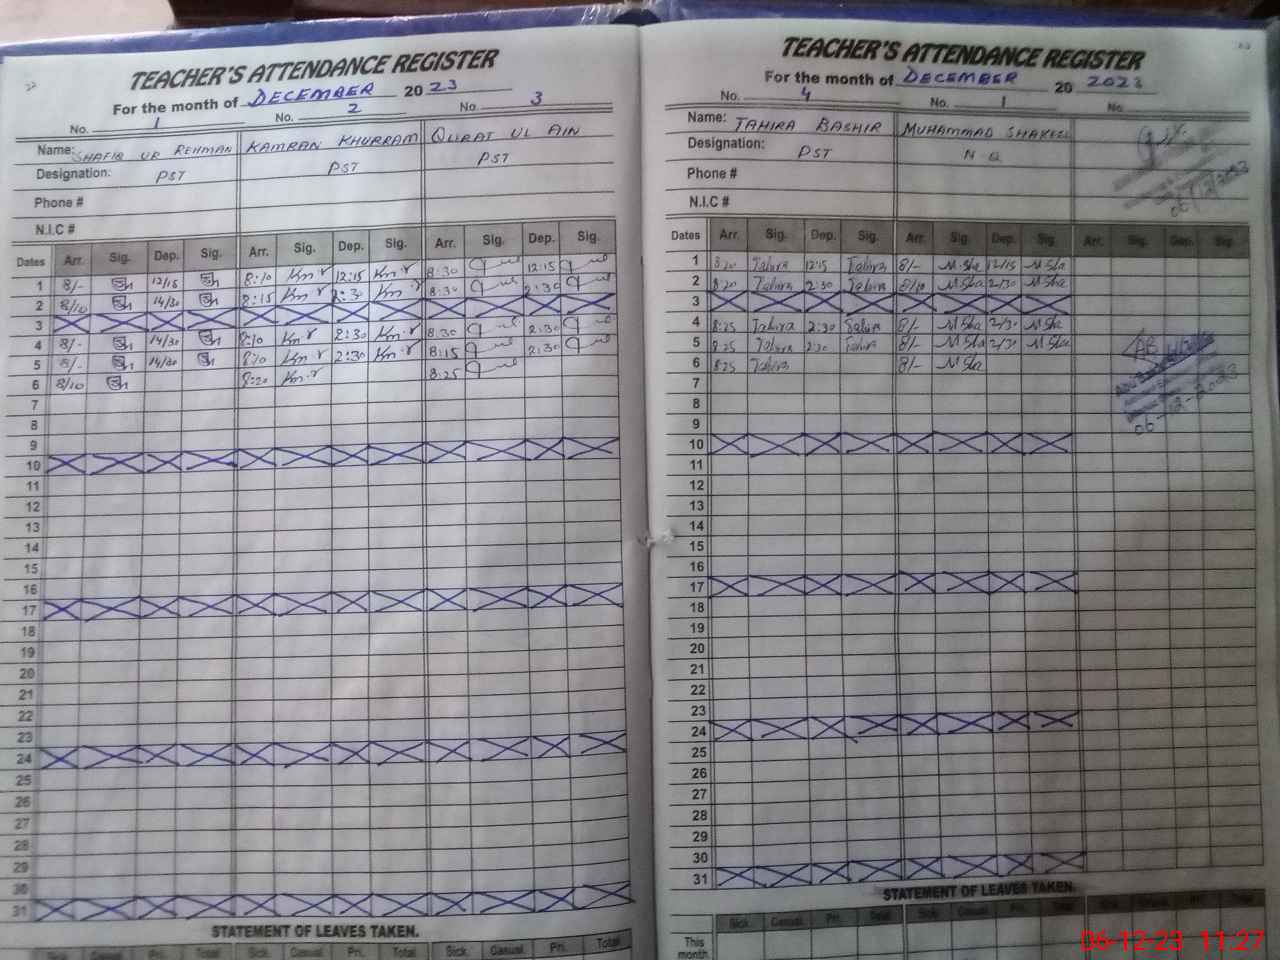 TEACHER'S ATTENDANCE REGISTER
For the month of DECEMBER 2023
No. 1 No. 2 No. 3
Name: SHAFIQ UR REHMAN KAMRAN KHURRAM QURAT UL AIN
Designation: PST PST PST
Phone #
N.I.C #
Dates Arr. Sig. Dep. Sig. Arr. Sig. Dep. Sig. Arr. Sig. Dep. Sig.
1 8/- 12/15 8:10 Km.r 12:15 Km.r 8:30 12:15
2 8/10 14/30 8:15 Km.r 2:30 Km.r 8:30 2:30
3
4 8/- 14/30 8:10 Km.r 2:30 Km.r 8:30 2:30
5 8/- 14/30 8:10 Km.r 2:30 Km.r 8:15 2:30
6 8/10 8:20 Km.r 8:25
7
8
9
10
11
12
13
14
15
16
17
18
19
20
21
22
23
24
25
26
27
28
29
30
31
STATEMENT OF LEAVES TAKEN.
Sick. Casual. Pri. Total Sick. Casual. Pri. Total Sick. Casual. Pri. Total
TEACHER'S ATTENDANCE REGISTER
For the month of DECEMBER 20 2023
No. 4 No. 1 No
Name: TAHIRA BASHIR MUHAMMAD SHAKEEL
Designation: PST N Q
Phone #
N.I.C #
06/12/2023
Dates Arr. Sig. Dep. Sig. Arr. Sig. Dep. Sig. Arr. Sig. Dep. Sig.
1 8:20 Tahira 12:15 Tahira 8/- M.Sha 12/15 M.Sha
2 8:20 Tahira 2:30 Tahira 8/10 M.Sha 2/30 M.Sha
3
4 8:25 Tahira 2:30 Tahira 8/- M.Sha 2/30 M.Sha
5 8:25 Tahira 2:30 Tahira 8/- M.Sha 2/30 M.Sha
6 8:25 Tahira 8/- M.Sha
7
8
9
10
11
12
13
14
15
16
17
18
19
20
21
22
23
24
25
26
27
28
29
30
31
06-12-2023
STATEMENT OF LEAVES TAKEN.
Sick. Casual. Pri. Total Sick. Casual. Pri. Total Sick. Casual. Pri. Total
This month
06-12-23 11:27